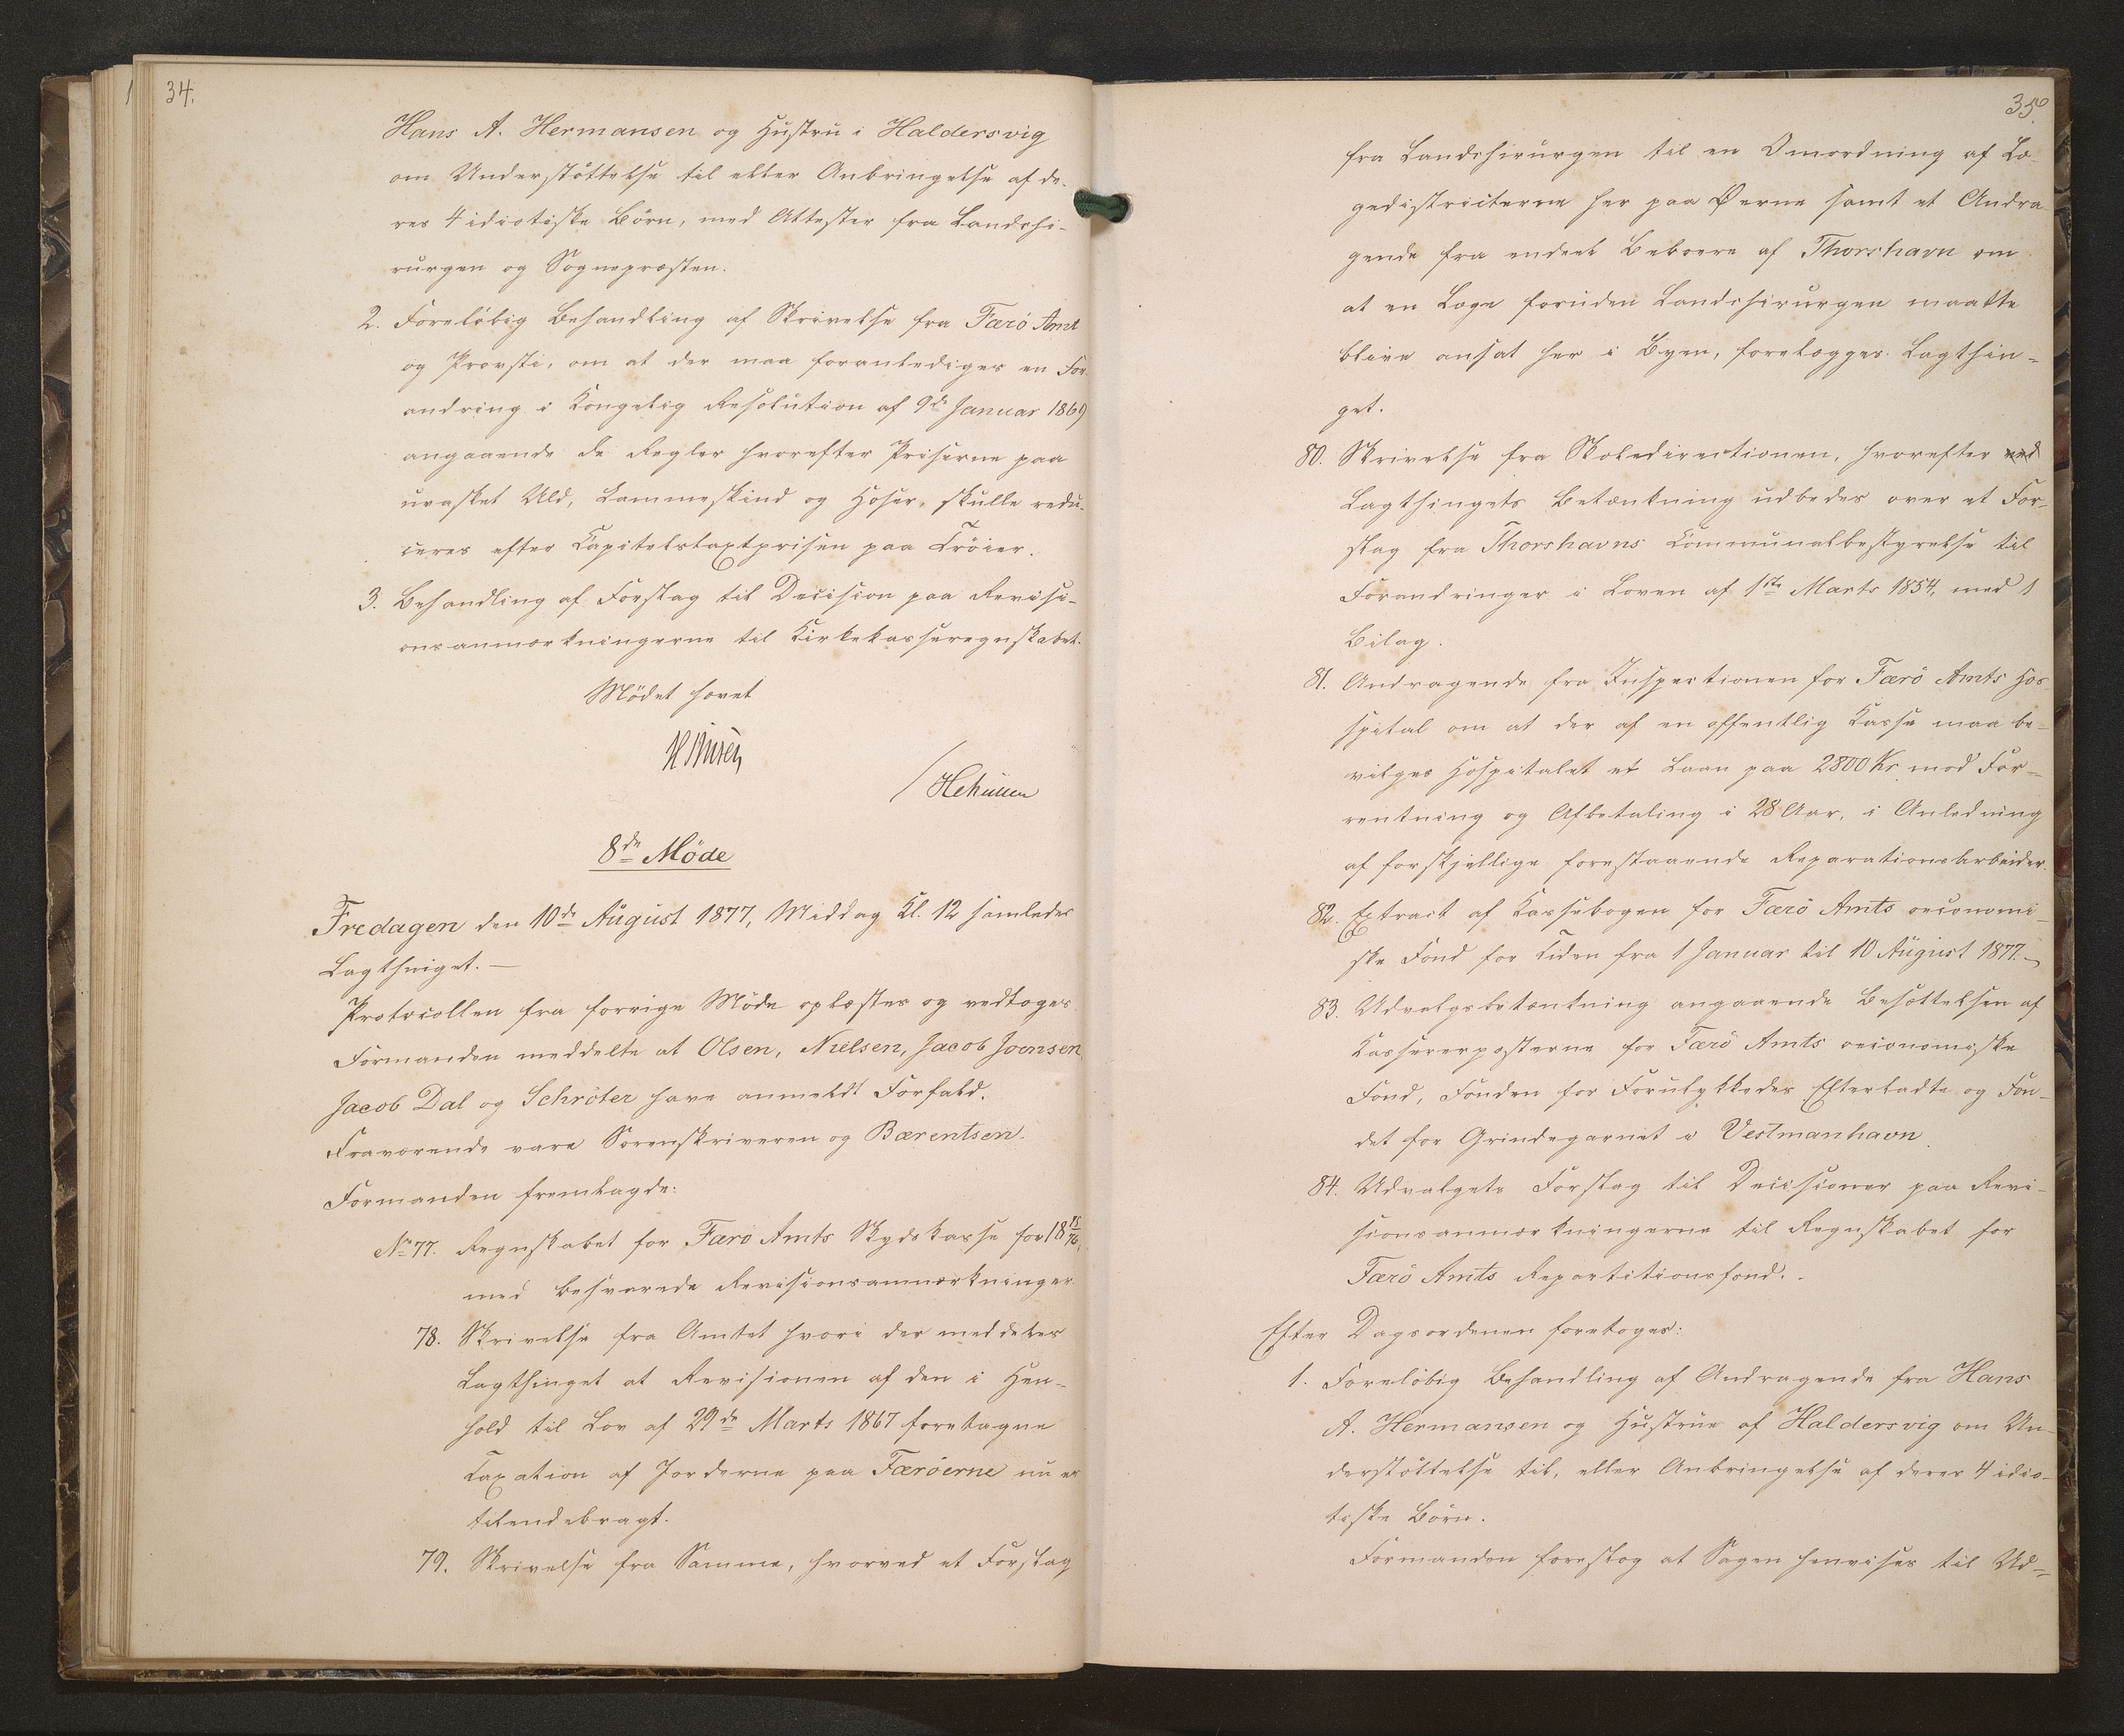 34.
Hans A. Hermansen og Hustru i Haldersvig
om Understøttelse til eller Anbringelse af de-
res 4 idiotiske Børn, med Attester fra Landchi-
rurgen og Sognepræsten.
2. Foreløbig Behandling af Skrivelse fra Færø Amt
og Provsti, om at der maa foranlediges en For-
andring i Kongelig Resolution af 9de Januar 1869
angaaende de Regler hvorefter Priserne paa
uvasket Uld, Lammeskind og Hoser, skulle redu-
ceres efter Capitelstaxtprisen paa Trøier.
3. Behandling af Forslag til Decision paa Revisi-
onsanmærkningerne til Kirkekasseregnskabet.
Mødet hævet
8de Møde
Fredagen den 10de August 1877, Middag Kl. 12 samledes
Lagthinget. —
Protocollen fra forrige Møde oplæstes og vedtoges
Formanden meddelte at Olsen, Nielsen, Jacob Joensen
Jacob Dal og Schrøter have anmeldt Forfald.
Fraværende vare Sorenskriveren og Bærentsen.
Formanden fremlagde:
No 77. Regnskabet for Færø Amts Skydskasse for 1875/76,
med besvarede Revisionsanmærkninger.
78. Skrivelse fra Amtet hvori der meddeles
Lagthinget at Revisionen af den i Hen-
hold til Lov af 29de Marts 1867 foretagne
Taxation af Jorderne paa Færøerne nu er
tilendebragt.
79. Skrivelse fra Samme, hvorved et Forslag
35.
fra Landchirurgen til en Omordning af Læ-
gedistricterne her paa Øerne samt et Andra-
gende fra endeel Beboere af Thorshavn om
at en Læge foruden Landchirurgen maatte
blive ansat her i Byen, forelægges Lagthin-
get.
80. Skrivelse fra Skoledirectionen, hvorefter ved
Lagthingets Betænkning udbedes over et For-
slag fra Thorshavns Communalbestyrelse til
Forandringer i Loven af 1ste Marts 1854, med 1
Bilag.
81. Andragende fra Inspectionen for Færø Amts Hos-
spital om at der af en offentlig Kasse maa be-
vilges Hospitalet et Laan paa 2800 Kr. mod For-
rentning og Afbetaling i 28 Aar, i Anledning
af forskjellige forestaaende Reparationsarbeider.
82. Extract af Kassebogen for Færø Amts oeconomi-
ske Fond for Tiden fra 1 Januar til 10 August 1877. -
83. Udvalgsbetænkning angaaende Besættelsen af
Kassererposterne for Færø Amts oeconomiske
Fond, Fonden for Forulykkedes Efterladte og Fon-
det for Grindegarnet i Vestmanhavn.
84. Udvalgets Forslag til Decisioner paa Revi-
sionsanmærkningerne til Regnskabet for
Færø Amts Repartitionsfond. -
Efter Dagsordenen foretoges:
1. Foreløbig Behandling af Andragende fra Hans
A. Hermansen og Hustrue af Haldersvig om Un-
derstøttelse til, eller Anbringelse af deres 4 idio-
tiske Børn.
Formanden foreslog at Sagen henvises til Ud-